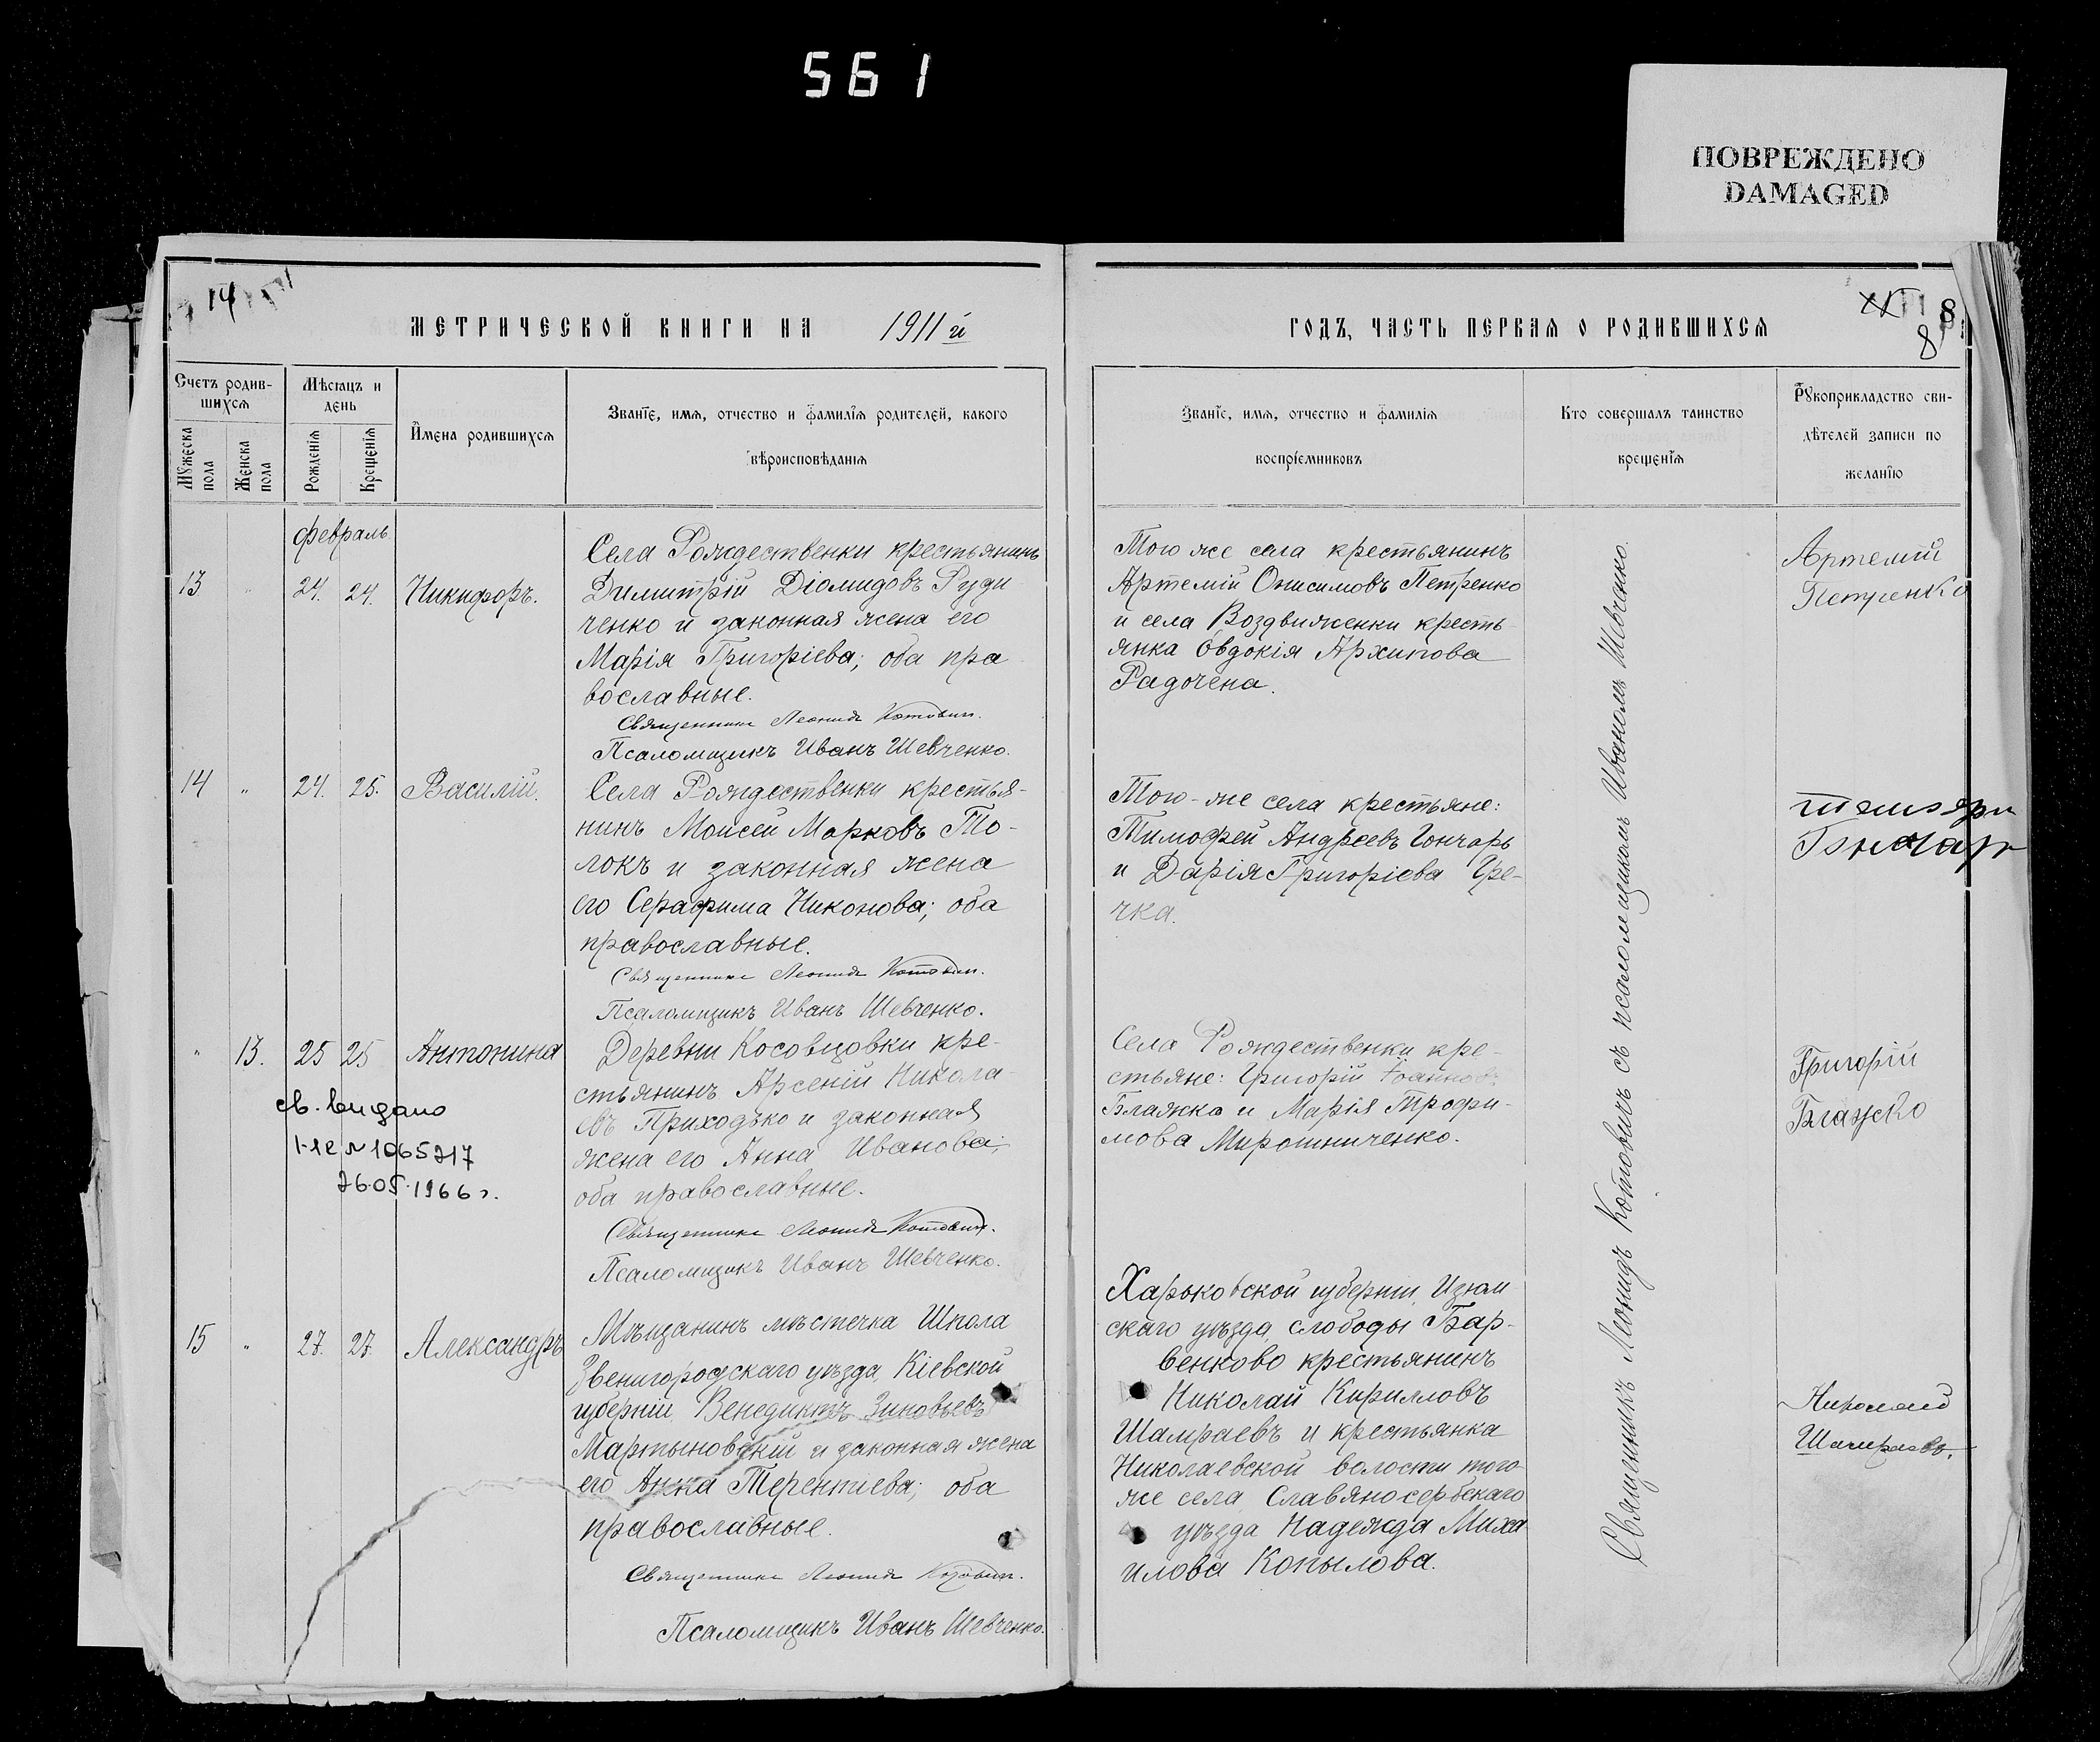 561
ПОВРЕЖДЕНО
DAMAGED
14
МЕТРИЧЕСКОЙ КНИГИ НА 1911 й
Счетъ родив-
шихся
Мужеска пола
Женска пола
Мѣсяцъ и
день
Рожденія
Крещенія
Имена родившихся
Званіе, имя, отчество и фамилія родителей, какого
вѣроисповѣданія
февраль
13 " 24. 24. Никифоръ.
Села Рождественки крестьянинъ
Димитрій Діомидовъ Руди
ченко и законная жена его
Марія Григоріева; оба пра
вославные.
Священникъ Леонидъ Котовичъ.
Псаломщикъ Иванъ Шевченко.
14 " 24. 25. Василій.
Села Рождественки крестья-
нинъ Моисей Марковъ То-
локъ и законная жена
его Серафима Никонова; оба
православные.
Священникъ Леонидъ Котовичъ.
Псаломщикъ Иванъ Шевченко.
" 13. 25 25 Антонина
св. видано
І-ЯЕ № 1065217
26.05.1966 г.
Деревни Косовцовки кре-
стьянинъ Арсеній Никола-
евъ Приходько и законная
жена его Анна Иванова;
оба православные.
Священникъ Леонидъ Котовичъ.
Псаломщикъ Иванъ Шевченко.
15 " 27. 27. Александръ
Мѣщанинъ мѣстечка Шпола
Звенигородскаго уѣзда, Кіевской
губерніи, Венедиктъ Зиновьевъ
Мартыновскій и законная жена
его Анна Терентіева; оба
православные.
Священникъ Леонидъ Котовичъ.
Псаломщикъ Иванъ Шевченко.
8
8
ГОДЪ, ЧАСТЬ ПЕРВАЯ О РОДИВШИХСЯ
Званіе, имя, отчество и фамилія
воспріемниковъ
Кто совершалъ таинство
крещенія
Рукоприкладство сви-
дѣтелей записи по
желанію
Того же села крестьянинъ
Артемій Онисимовъ Петренко
и села Воздвиженки кресть
янка Евдокія Архипова
Радочена.
Артемій
Петренко
Того-же села крестьяне:
Тимофей Андреевъ Гончаръ
и Дарія Григоріева Гре-
чка.
Гончар
Села Рождественки кре-
стьяне: Григорій Іоанновъ
Блажко и Марія Трофи-
мова Мирошниченко.
Григорій
Блажко
Харьковской губерніи, Изюм
скаго уѣзда, слободы Бар-
венково крестьянинъ
Николай Кирилловъ
Шамраевъ и крестьянка
Николаевской волости того-
же села Славяносербскаго
уѣзда Надежда Миха
илова Копылова.
Николай
Шамраевъ.
Священникъ Леонидъ Котовичъ съ псаломщикомъ Иваномъ Шевченко.